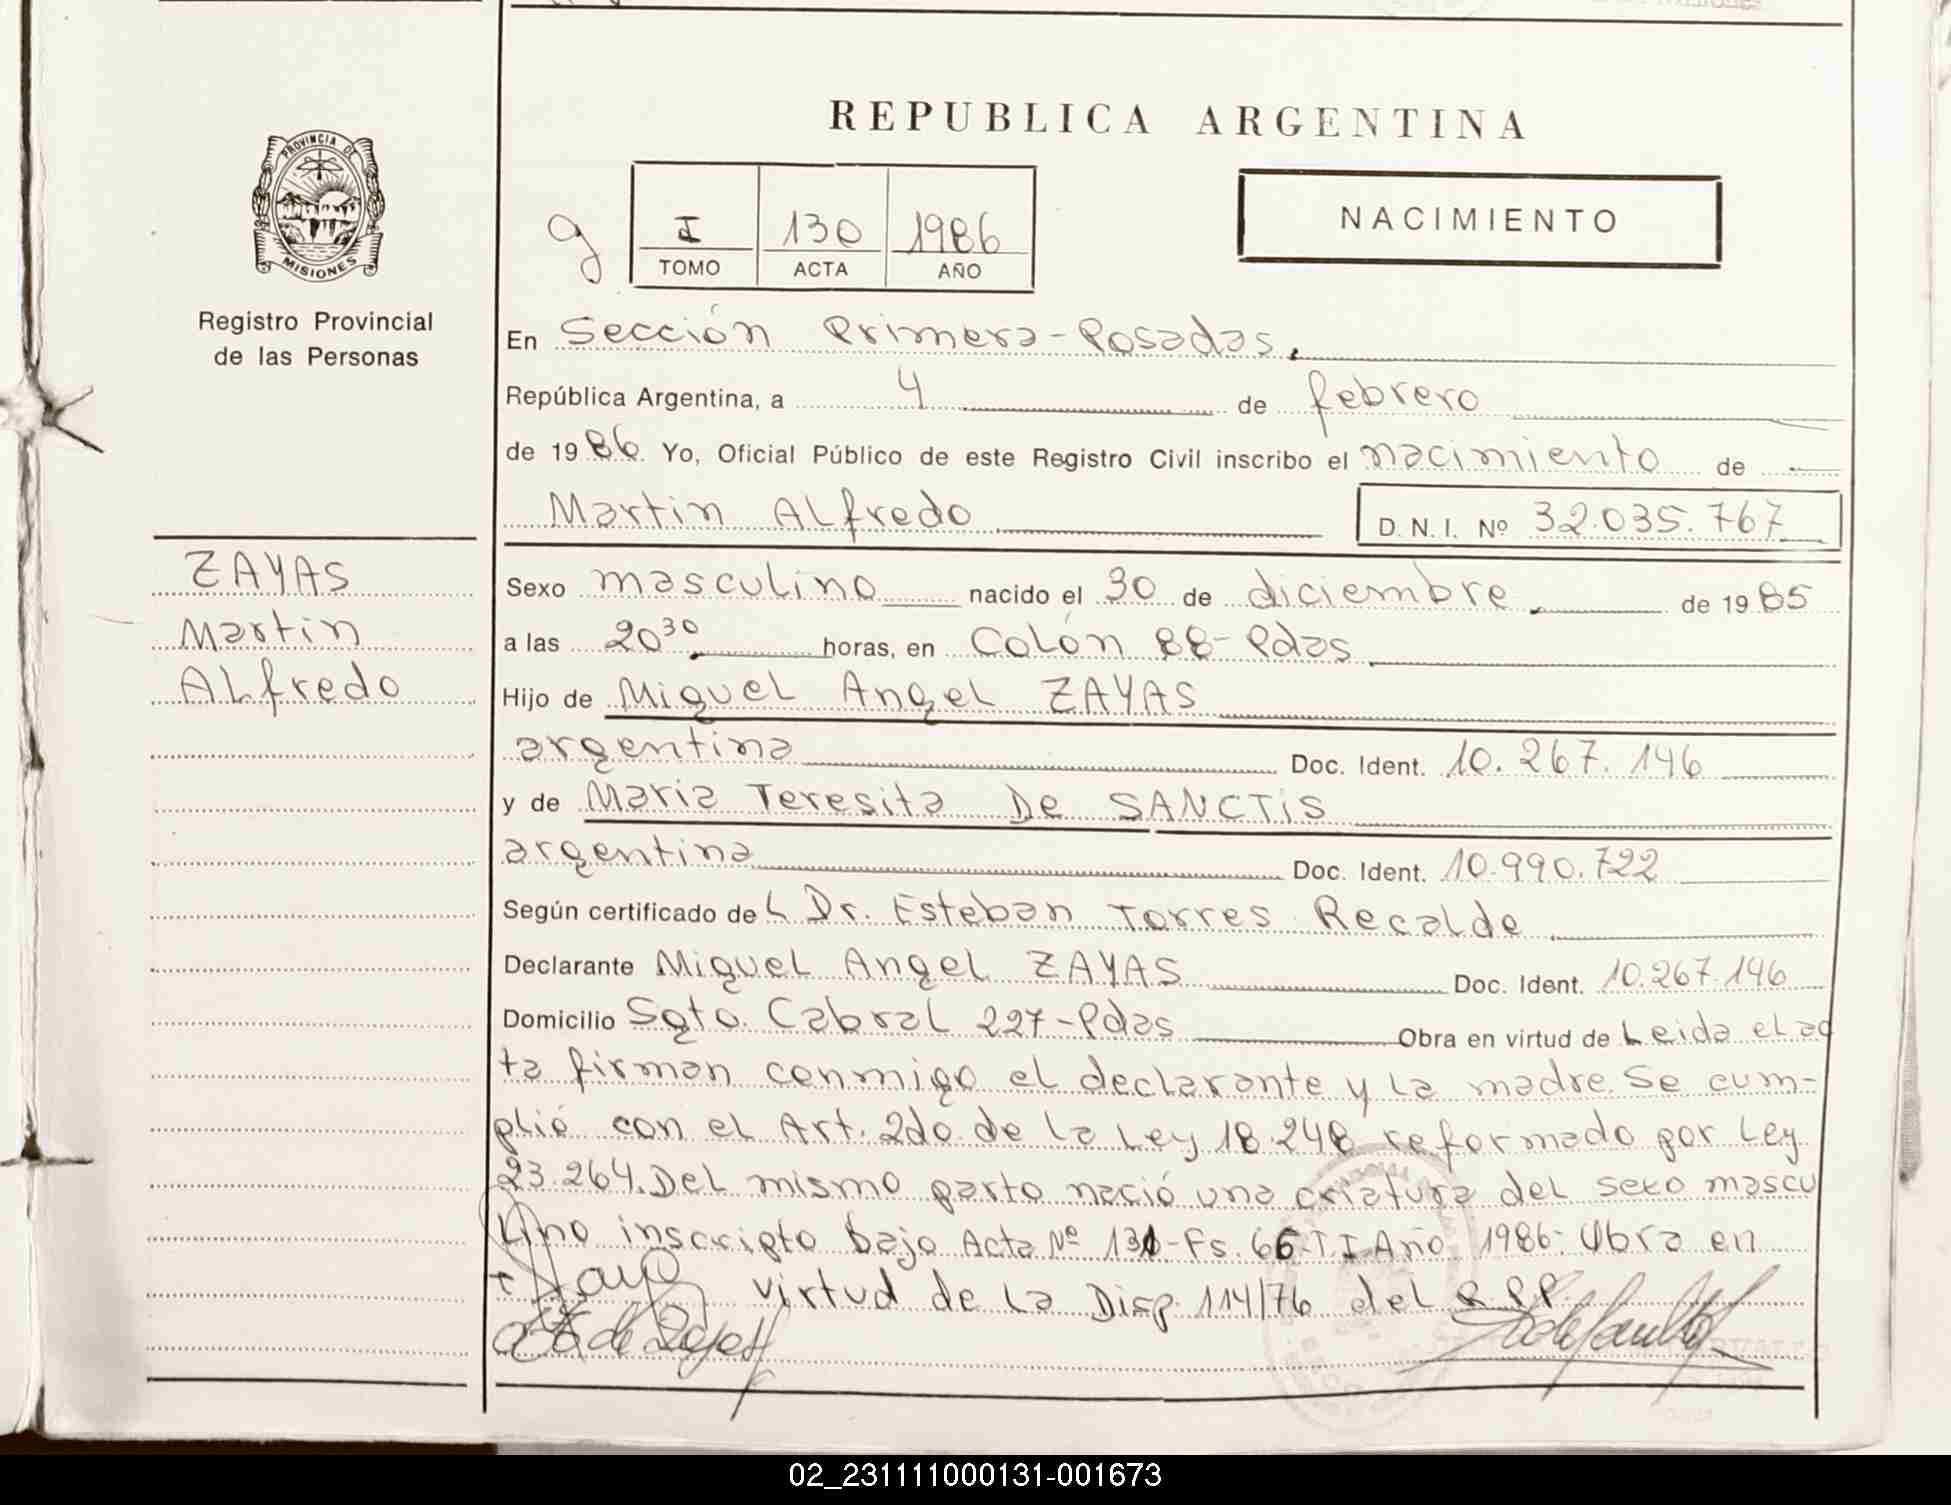 REPUBLICA ARGENTINA
PROVINCIA DE
MISIONES
Registro Provincial
de las Personas
g
I 130 1986
TOMO ACTA AÑO
NACIMIENTO
En Sección Primera-Posadas.
República Argentina, a 4 de febrero
de 1986. Yo, Oficial Público de este Registro Civil inscribo el nacimiento de
Martin ALfredo D. N. I. Nº 32.035.767
ZAYAS
Martin
ALfredo
Sexo masculino nacido el 30 de diciembre. de 1985
a las 20³⁰ horas, en Colón 88-Pdas
Hijo de Miguel Angel ZAYAS
argentina Doc. Ident. 10.267.146
y de Maria Teresita De SANCTiS
argentina Doc. Ident. 10.990.722
Según certificado deL Dr. Esteban Torres Recalde
Declarante Miguel Angel ZAYAS Doc. Ident. 10.267.146
Domicilio Sgto. Cabral 227-Pdas Obra en virtud de Leida el ac
ta firman conmigo el declarante y la madre. Se cum-
plió con el Art. 2do de la Ley 18.248 reformado por Ley
23.264. Del mismo parto nació una criatura del sexo mascu
lino inscripto bajo Acta Nº 131-Fs. 66-T I Año 1986- Obra en
virtud de la Disp. 114/76 del R.P.P.
02_231111000131-001673